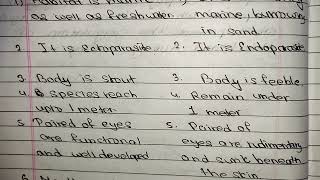 1) Habitat is marine
as well as freshwater. marine, burrowing
in sand.
2. It is Ectoparasite 2. It is Endoparasite
3. Body is stout 3. Body is feeble.
4. species reach 4. Remain under
upto 1 meter. 1 meter
5. Paired of eyes 5. Paired of
are functional eyes are rudimentary
and well developed and sunk beneath
the skin